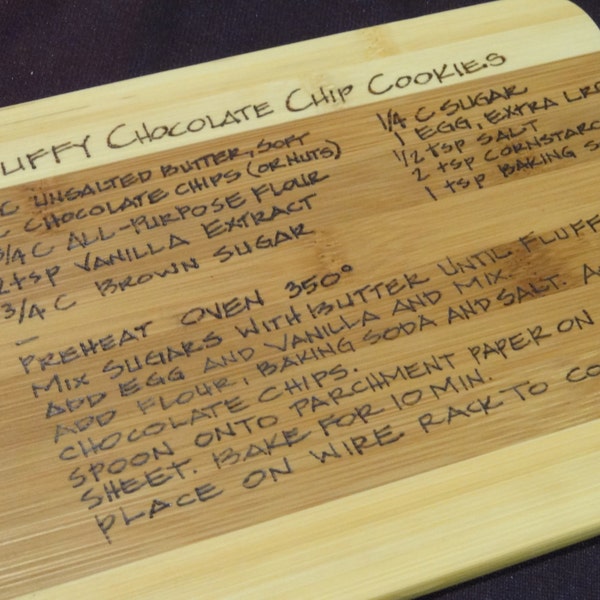 UFFY CHOCOLATE CHIP COOKIES
C UNSALTED BUTTER, SOFT
CHOCOLATE CHIPS (OR NUTS)
3/4 C ALL-PURPOSE FLOUR
2 tsp VANILLA EXTRACT
3/4 C BROWN SUGAR
1/4 C SUGAR
1 EGG, EXTRA LRG
1/2 tsp SALT
2 tsp CORNSTARC
1 tsp BAKING S
PREHEAT OVEN 350°
MIX SUGARS WITH BUTTER UNTIL FLUFF
ADD EGG AND VANILLA AND MIX.
ADD FLOUR, BAKING SODA AND SALT. A
CHOCOLATE CHIPS.
SPOON ONTO PARCHMENT PAPER ON
SHEET. BAKE FOR 10 MIN.
PLACE ON WIRE RACK TO CO